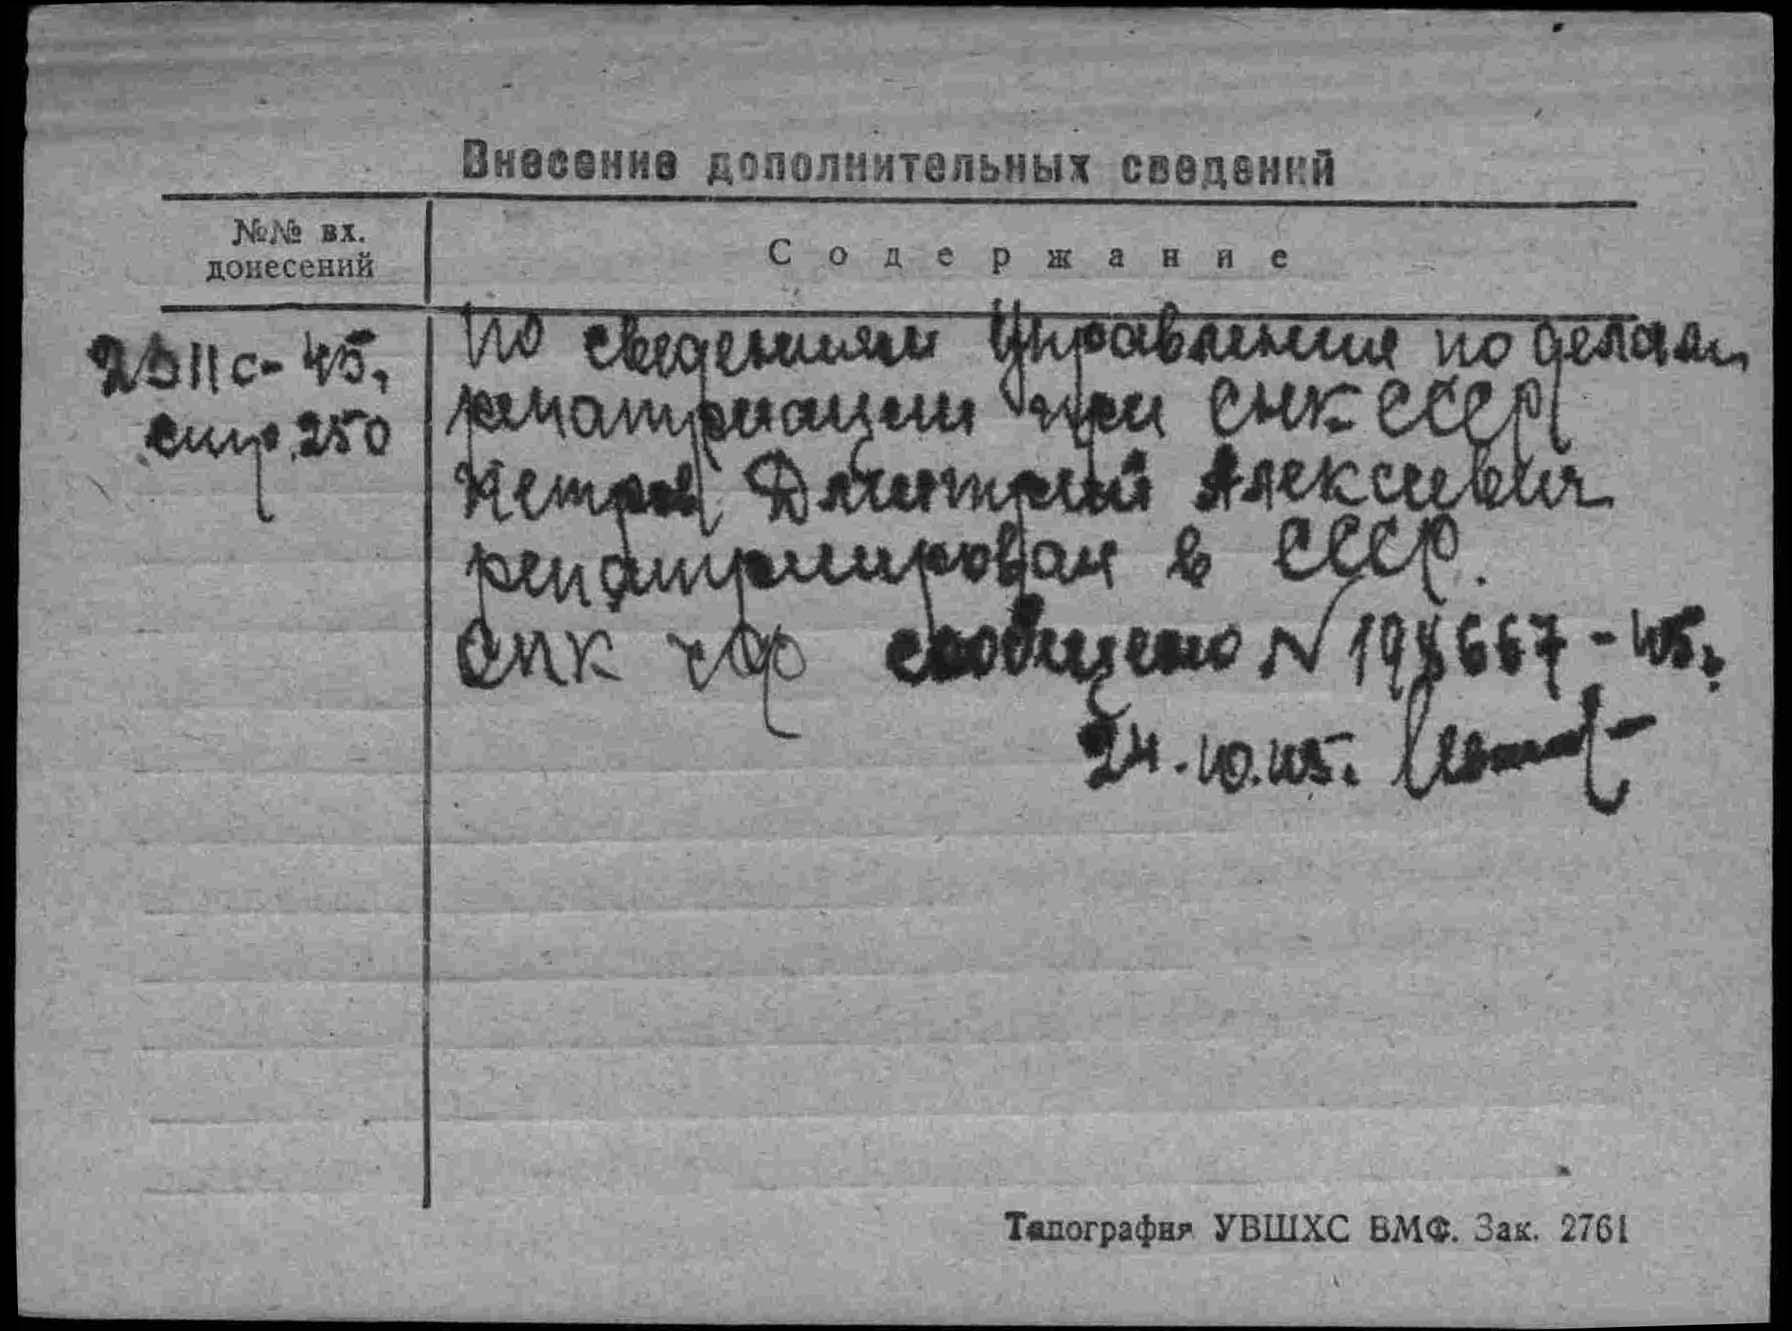 Внесение дополнительных сведений
№№ вх.
донесений
Содержание
2311с-45,
стр. 250
По сведениям Управления по делам
репатриации при СНК СССР
Петров Дмитрий Алексеевич
репатриирован в СССР.
сообщено N 198667-45.
24.10.45.
Типография УВШХС ВМФ. Зак. 2761